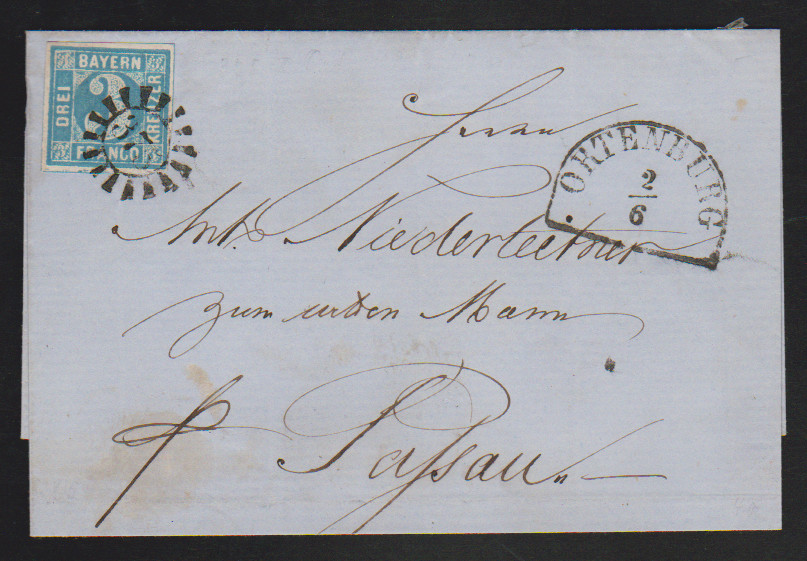 BAYERN
DREI
3
KREUZER
FRANCO
ORTENBURG
2
6
Herrn
Ant. Niederleitner
zum wilden Mann
Passau